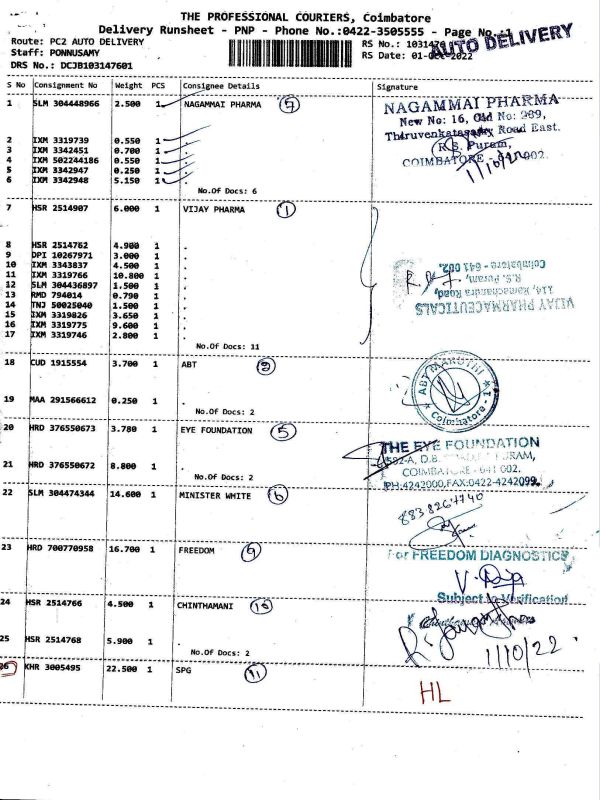 THE PROFESSIONAL COURIERS, Coimbatore
Delivery Runsheet - PNP - Phone No.:0422-3505555 - Page No.:1
AUTO DELIVERY
Route: PC2 AUTO DELIVERY
Staff: PONNUSAMY
DRS No.: DCJB103147601
RS No.: 1031476
RS Date: 01-Oct-2022
S No Consignment No Weight PCS Consignee Details Signature
1 SLM 304448966 2.500 1 NAGAMMAI PHARMA 7
2 IXM 3319739 0.550 1 .
3 IXM 3342451 0.700 1 .
4 IXM 502244186 0.550 1 .
5 IXM 3342947 0.250 1 .
6 IXM 3342948 5.150 1 .
No.Of Docs: 6
NAGAMMAI PHARMA
New No: 16, Old No: 289,
Thiruvenkatasamy Road East.
R.S. Puram,
COIMBATORE - 641 002.
1/10/22
7 HSR 2514907 6.000 1 VIJAY PHARMA 1
8 HSR 2514762 4.900 1 .
9 DPI 10267971 3.000 1 .
10 IXM 3343837 4.500 1 .
11 IXM 3319766 10.800 1 .
12 SLM 304436897 1.500 1 .
13 RMD 794014 0.790 1 .
14 TNJ 50025040 1.500 1 .
15 IXM 3319826 3.650 1 .
16 IXM 3319775 9.600 1 .
17 IXM 3319746 2.800 1 .
No.Of Docs: 11
VIJAY PHARMACEUTICALS
114, Ramachandra Road,
R.S. Puram,
Coimbatore - 641 002.
18 CUD 1915554 3.700 1 ABT 2
19 MAA 291566612 0.250 1 .
No.Of Docs: 2
ABT MARUTHI
Coimbatore - 1
20 HRD 376550673 3.780 1 EYE FOUNDATION 5
21 HRD 376550672 8.800 1 .
No.Of Docs: 2
THE EYE FOUNDATION
582-A, D.B. PURAM,
COIMBATORE - 641 002.
PH:4242000,FAX:0422-4242099.
22 SLM 304474344 14.600 1 MINISTER WHITE 6
8838264740
23 HRD 700770958 16.700 1 FREEDOM 9
For FREEDOM DIAGNOSTICS
Subject to Verification
24 HSR 2514766 4.500 1 CHINTHAMANI 10
25 HSR 2514768 5.900 1 .
No.Of Docs: 2
1/10/22
26 KHR 3005495 22.500 1 SPG 11
HL